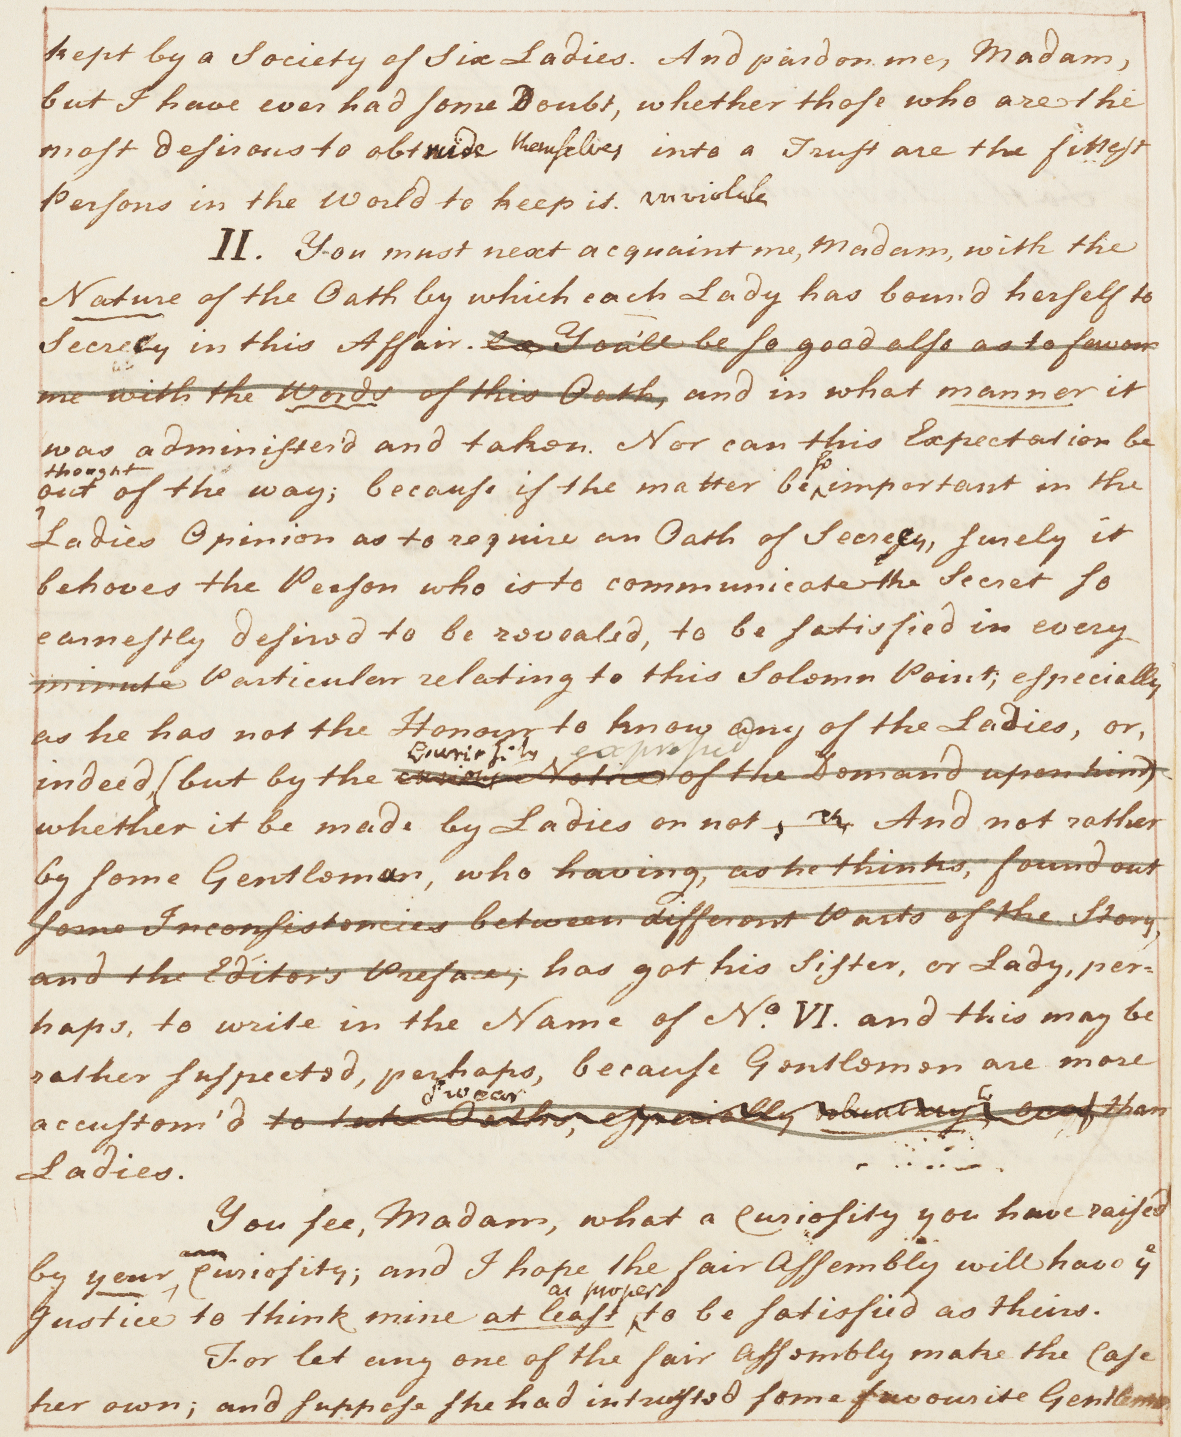 kept by a Society of Six Ladies. And pardon me, Madam,
but I have ever had some Doubt, whether those who are the
most desirous to obtrude themselves into a Trust are the fittest
Persons in the World to keep it. inviolate
II. You must next acquaint me, Madam, with the
Nature of the Oath by which each Lady has bound herself to
Secrecy in this Affair. You'll be so good also as to favour
me with the Words of this Oath, and in what manner it
was administer'd and taken. Nor can this Expectation be
thought
out of the way; because if the matter be so important in the
Ladies Opinion as to require an Oath of Secrecy, surely it
behoves the Person who is to communicate the Secret so
earnestly desired to be revealed, to be satisfied in every
minute Particular relating to this Solemn Point; especially
as he has not the Honour to know any of the Ladies, or,
Curiosity expressed
indeed, (but by the curious Notice of the Demand upon him)
whether it be made by Ladies or not, And not rather
by some Gentleman, who having, as he thinks, found out
some Inconsistencies between different Parts of the Story,
and the Editor's Preface; has got his Sister, or Lady, per=
haps, to write in the Name of No. VI. and this may be
rather suspected, perhaps, because Gentlemen are more
swear
accustom'd to take Oaths, especially than
Ladies.
You see, Madam, what a Curiosity you have raised
by your own Curiosity; and I hope the fair Assembly will have ye
Justice to think mine at least as proper to be satisfied as theirs.
For let any one of the fair Assembly make the Case
her own; and suppose she had intrusted some favourite Gentleman